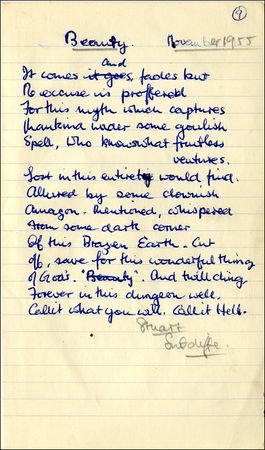 9
Beauty. November 1955
and
It comes it goes, fades but
No excuse is proffered
For this myth which captures
Mankind under some goulish
Spell, who knows what fruitless
ventures.
Lost in this entirety would find.
Allured by some clownish
Amazon - mentioned, whispered
From some dark corner
Of this Brazen Earth - Cut
off, save for this wonderful thing
of God's. "Beauty". And I'll cling
Forever in this dungeon well.
Call it what you will. Call it Hell.
Stuart
Sutcliffe.